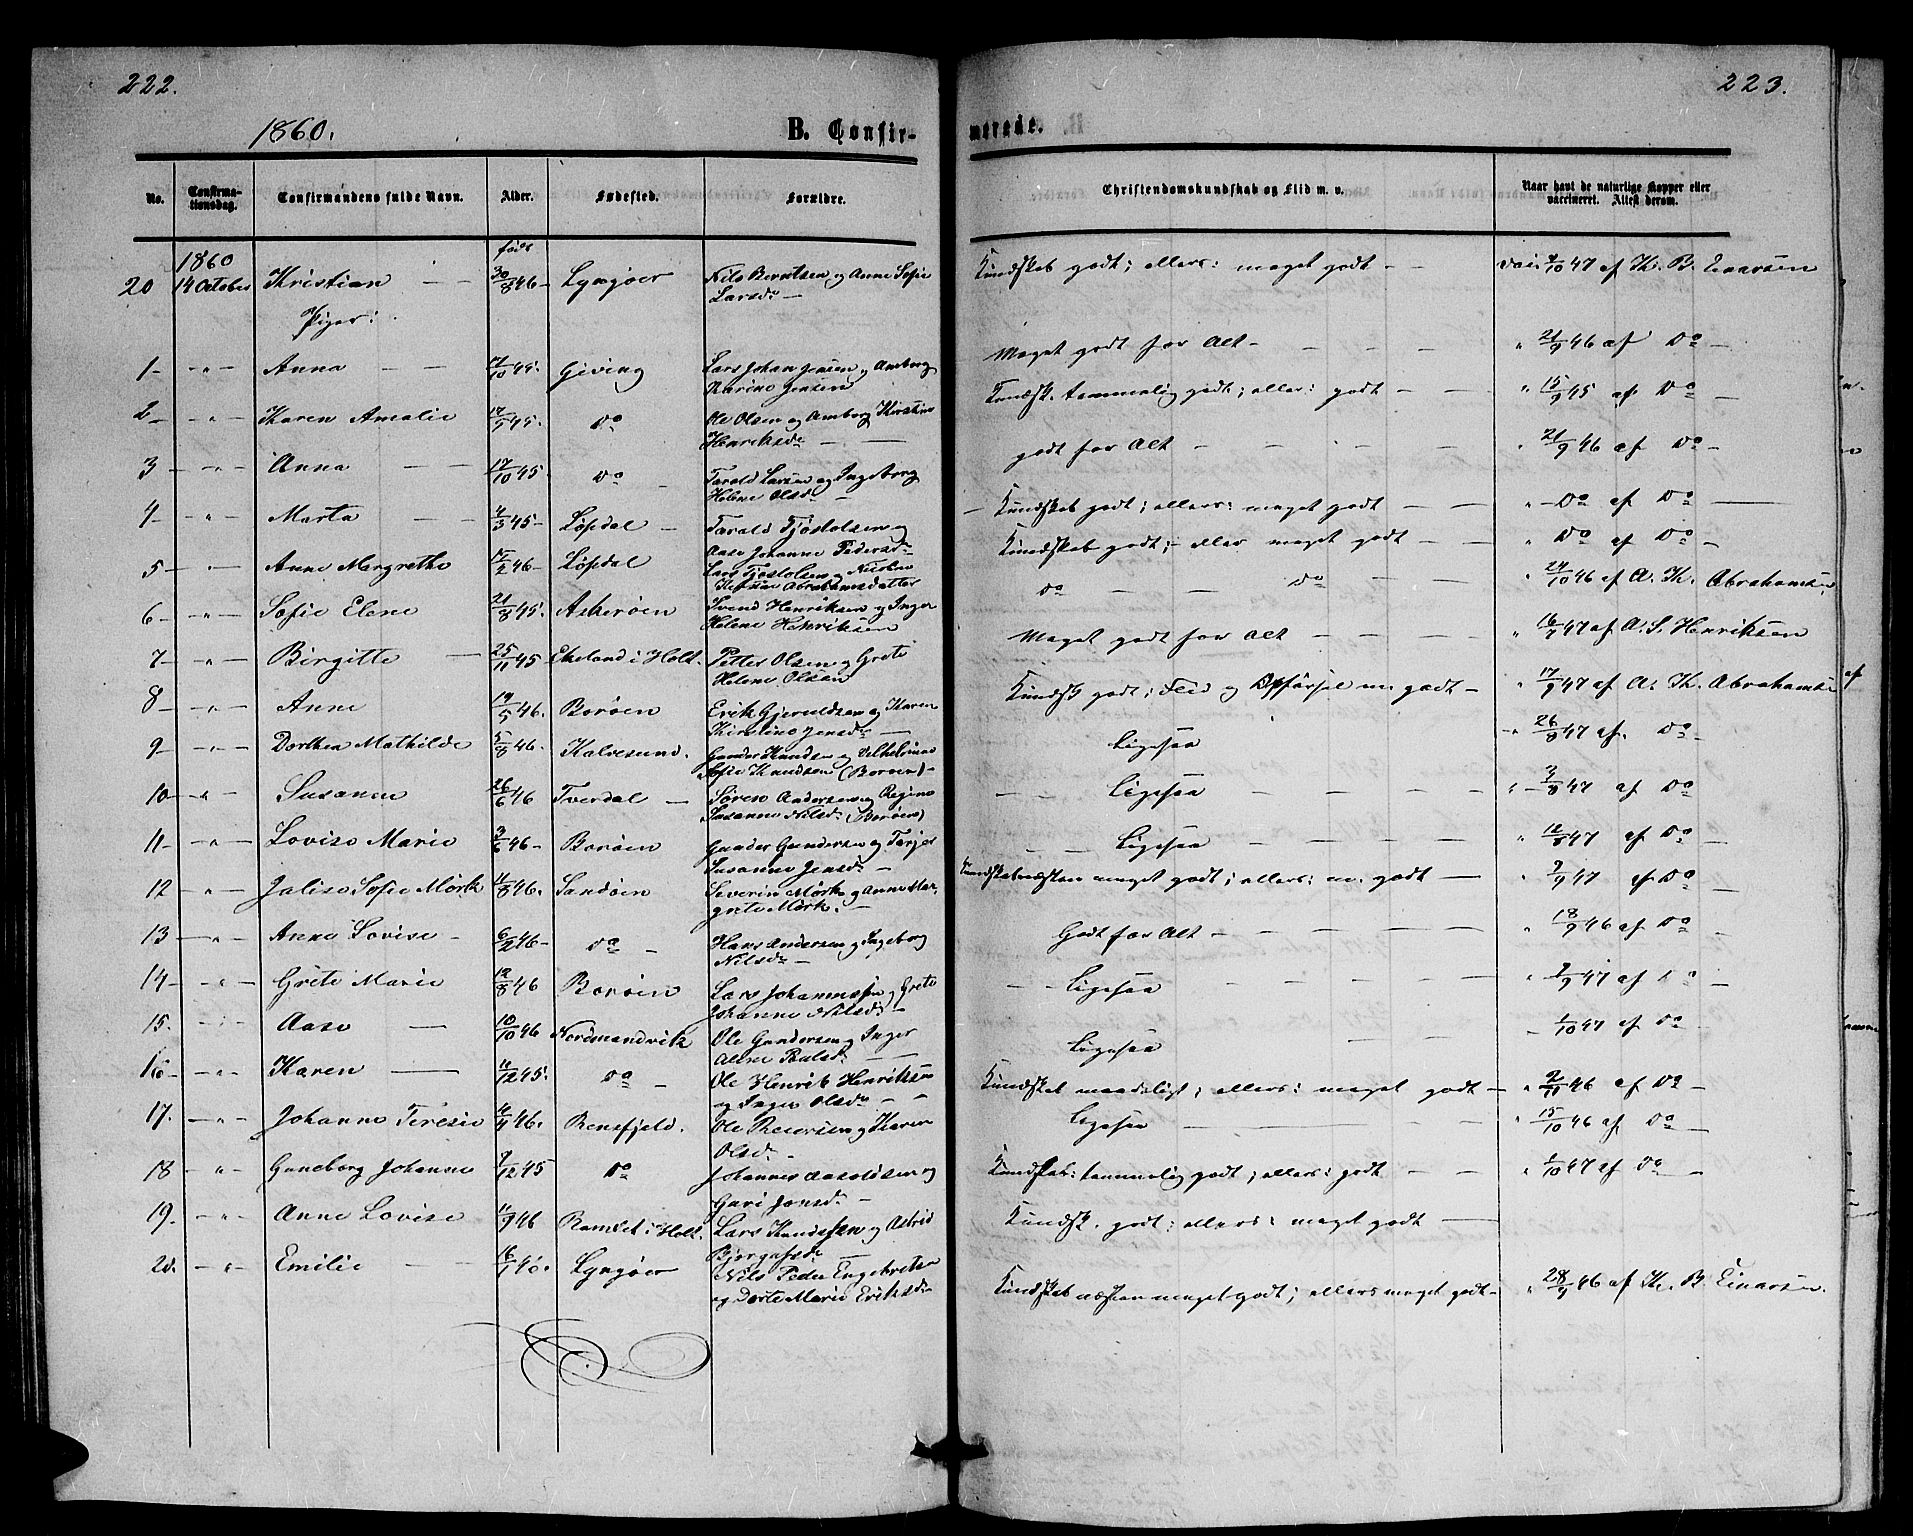 222.
223.
1860.
B. Confir-
merede.
No.
Confirma-
tionsdag.
Confirmandens fulde Navn.
Alder.
Fødested.
Forældre.
Christendomskundskab og Flid m. v.
Naar havt de naturlige Kopper eller
vaccineret. Attest derom.
1860
født
20 14 October Kristian 30/8 46 Lyngöer Nils Berntsen og Anne Sofie
Larsdr
Kundskab godt; ellers: meget godt 9/10 47 af Th. B. Einarsen
Piger:
1 " Anna 17/10 45. Giving Lars Johan Jensen og Amborg
Karine Jensen
Meget godt for Alt " 21/9 46 af Do
2 " Karen Amalie 17/5 45. Do Ole Olsen og Amborg Kirstine
Henriksdr
Kundsk. temmelig godt; ellers: godt " 15/9 45 af Do
3 " Anna 17/10 45. Do Tarald Larsen og Ingeborg
Helene Olsdr
godt for Alt " 21/9 46 af Do
4 " Marta 4/3 45 Löpdal Tarald Tjöstolsen og
Aase Johanne Pedersdr
Kundskab godt; ellers: meget godt " Do af Do
5 " Anne Margrethe 17/2 46 Löpdal Lars Tjöstolsen og
Abrahamsdatter
Kundskab godt; eller meget godt " Do af Do
6 " Sofie Elene 21/8 45. Askeröen Svend Henriksen og Inger
Helene Henriksen
Do Do " 24/10 46 af A. Th. Abrahamsen
7 " Birgitte 25/11 45 Ekeland i Holt. Petter Olsen og Grete
Helene Olsen
Meget godt for Alt " 16/7 47 af A. S. Henriksen
8 " Anne 19/5 46. Boröen Erik Gjeruldsen og Karen
Kirstine Jensdr
Kundsk godt; Flid og Opförsel m. godt " 17/9 47 af A. Th. Abrahamsen
9 " Dorthea Mathilde 5/8 46. Kalvesund. Gunder Knudsen og Vilhelmine
Sofie Knudsen (Boröen)
Ligesaa 26/8 47 af. Do
10 " Susanne 26/6 46 Tverdal Sören Andersen og Regine
Susanne Nilsd. (Boröen)
Ligesaa " 3/8 47 af Do
11 " Lovise Marie 3/6 46 Boröen Gunder Gundersen og Terjer
Susanne Jensdr
Ligesaa " 12/8 47 af Do
12 " Jalise Sofie Mörk 11/8 46. Sandöen Severin Mörk og Anne Mar,
grete Mörk.
Kundskab næsten meget godt; ellers: m. godt " 7/9 47 af Do
13 " Anne Lovise 6/2 46 Do Hans Andersen og Ingeborg
Nilsdr
Godt for Alt " 18/9 46 af Do
14 " Grete Marie 12/8 46 Boröen Lars Johannessen og Grete
Johanne Nilsdr
Ligesaa " 7/9 47 af Do
15. " Aase 10/10 46 Nordmandvik Ole Gundersen og Inger
Alene Paalsdr
Ligesaa 1/10 47 af Do
16 " Karen 11/12 45. Do Ole Henrik Henriksen
og Inger Olsdr
Kundskab maadeligt; ellers: meget godt " 2/11 46 af Do
17. " Johanne Teresie 4/4 46. Bensfjeld. Ole Reiersen og Karen
Olsdr
Ligesaa " 15/10 46 af Do
18 " Guneborg Johanne 7/12 45 Do Johannes Aaroldsen og
Guri Jonsdr
Kundskab: temmelig godt; ellers: godt " 1/10 47 af Do
19. " Anne Lovise 11/9 46 Ramdet i Holt. Lars Knudssen og Astrid
Bjorgufsdr
Kundsk. godt: ellers: meget godt
20. " Emilie 16/1 46. Lyngöer Nils Peder Engebretsen
og Dorte Marie Eriksdr
Kundskab næsten meget godt; ellers meget godt " 28/9 46 af Th. B. Einarsen.